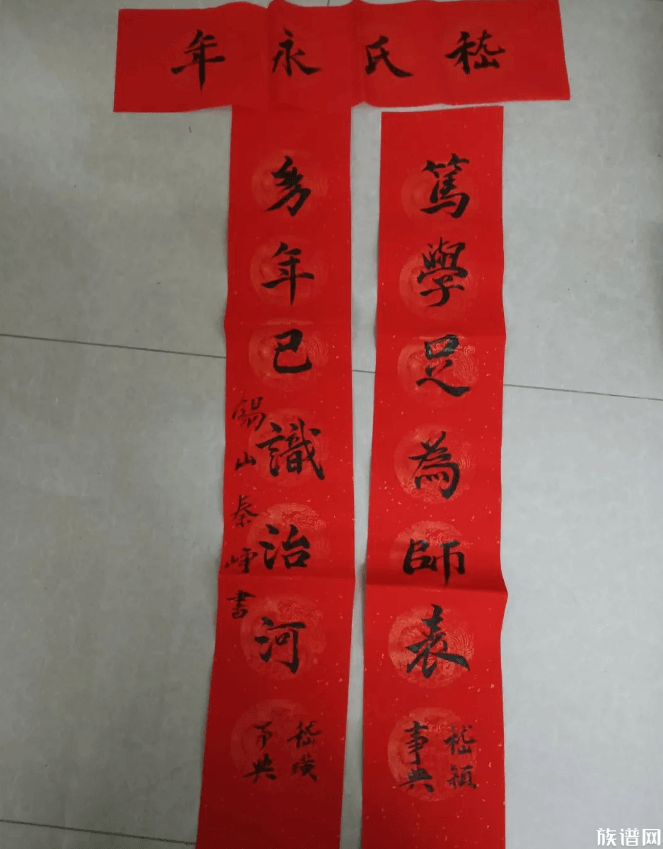 嵇氏永年
篤學足為師表
嵇穎
事典
多年已識治河
嵇璜
事典
錫山秦峥書
族谱网